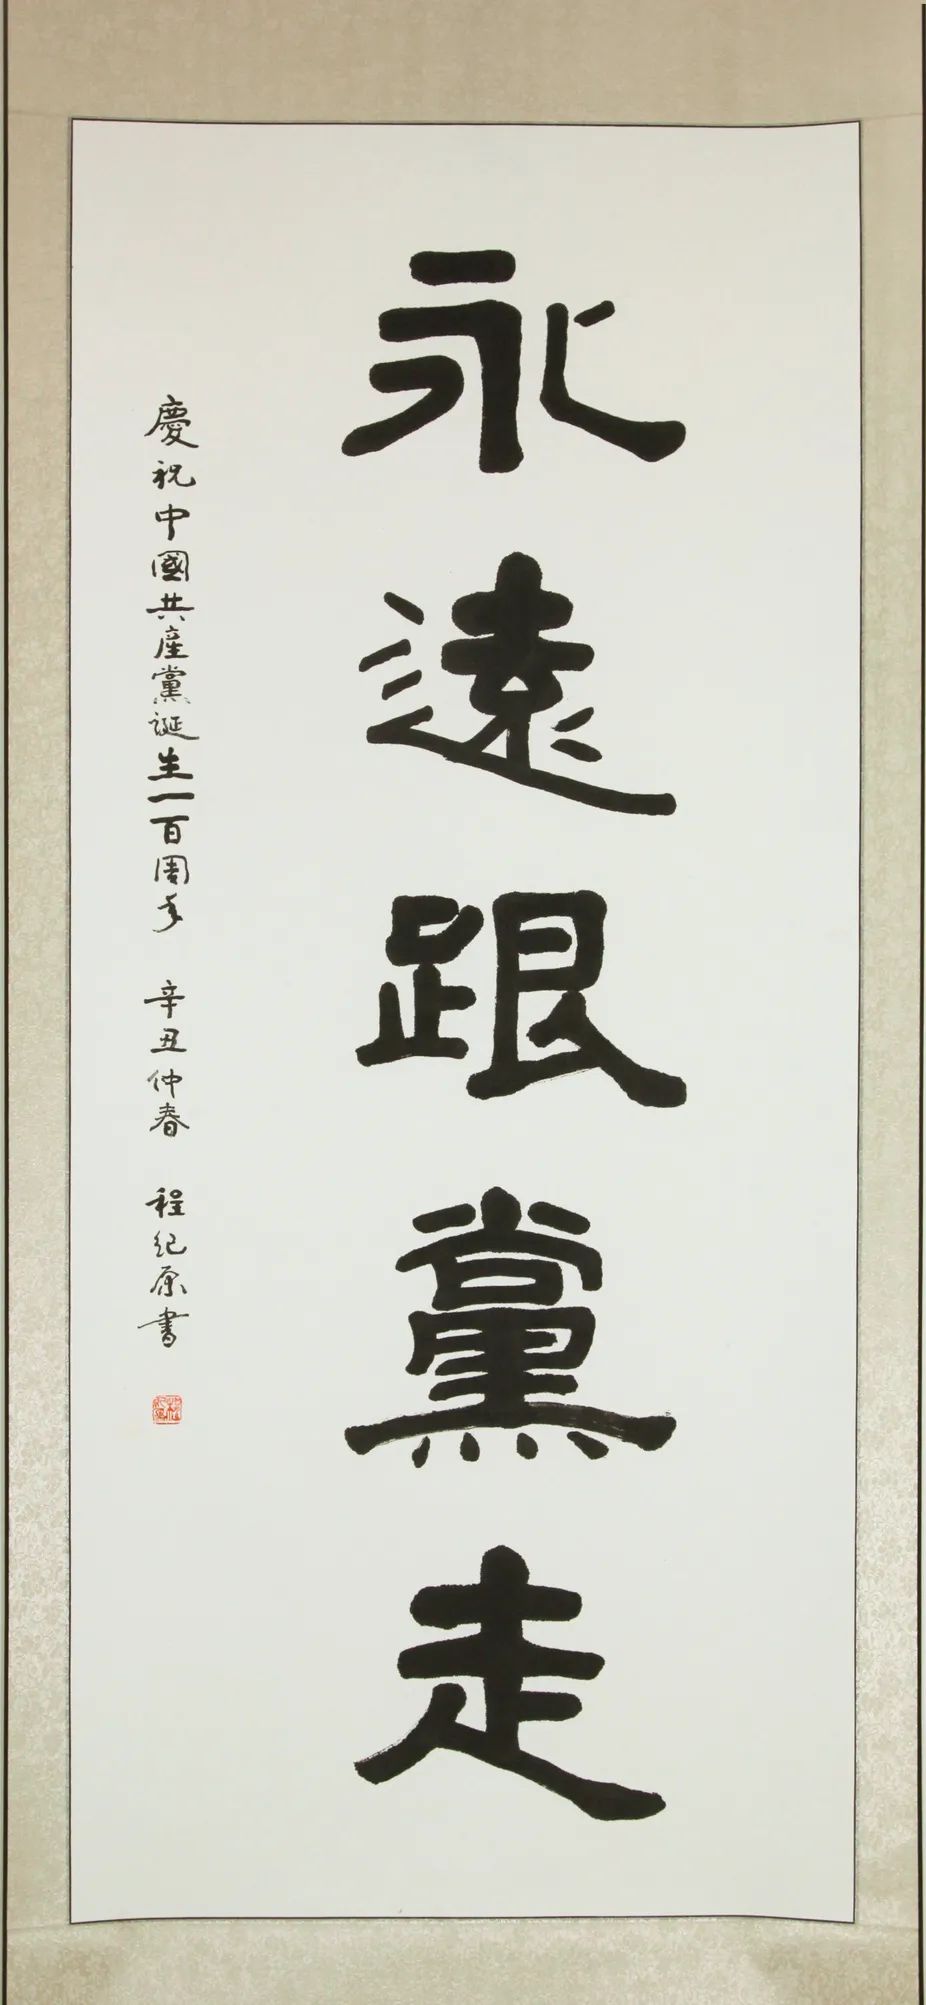 永遠跟黨走
慶祝中國共產黨誕生一百周年 辛丑仲春 程紀原書